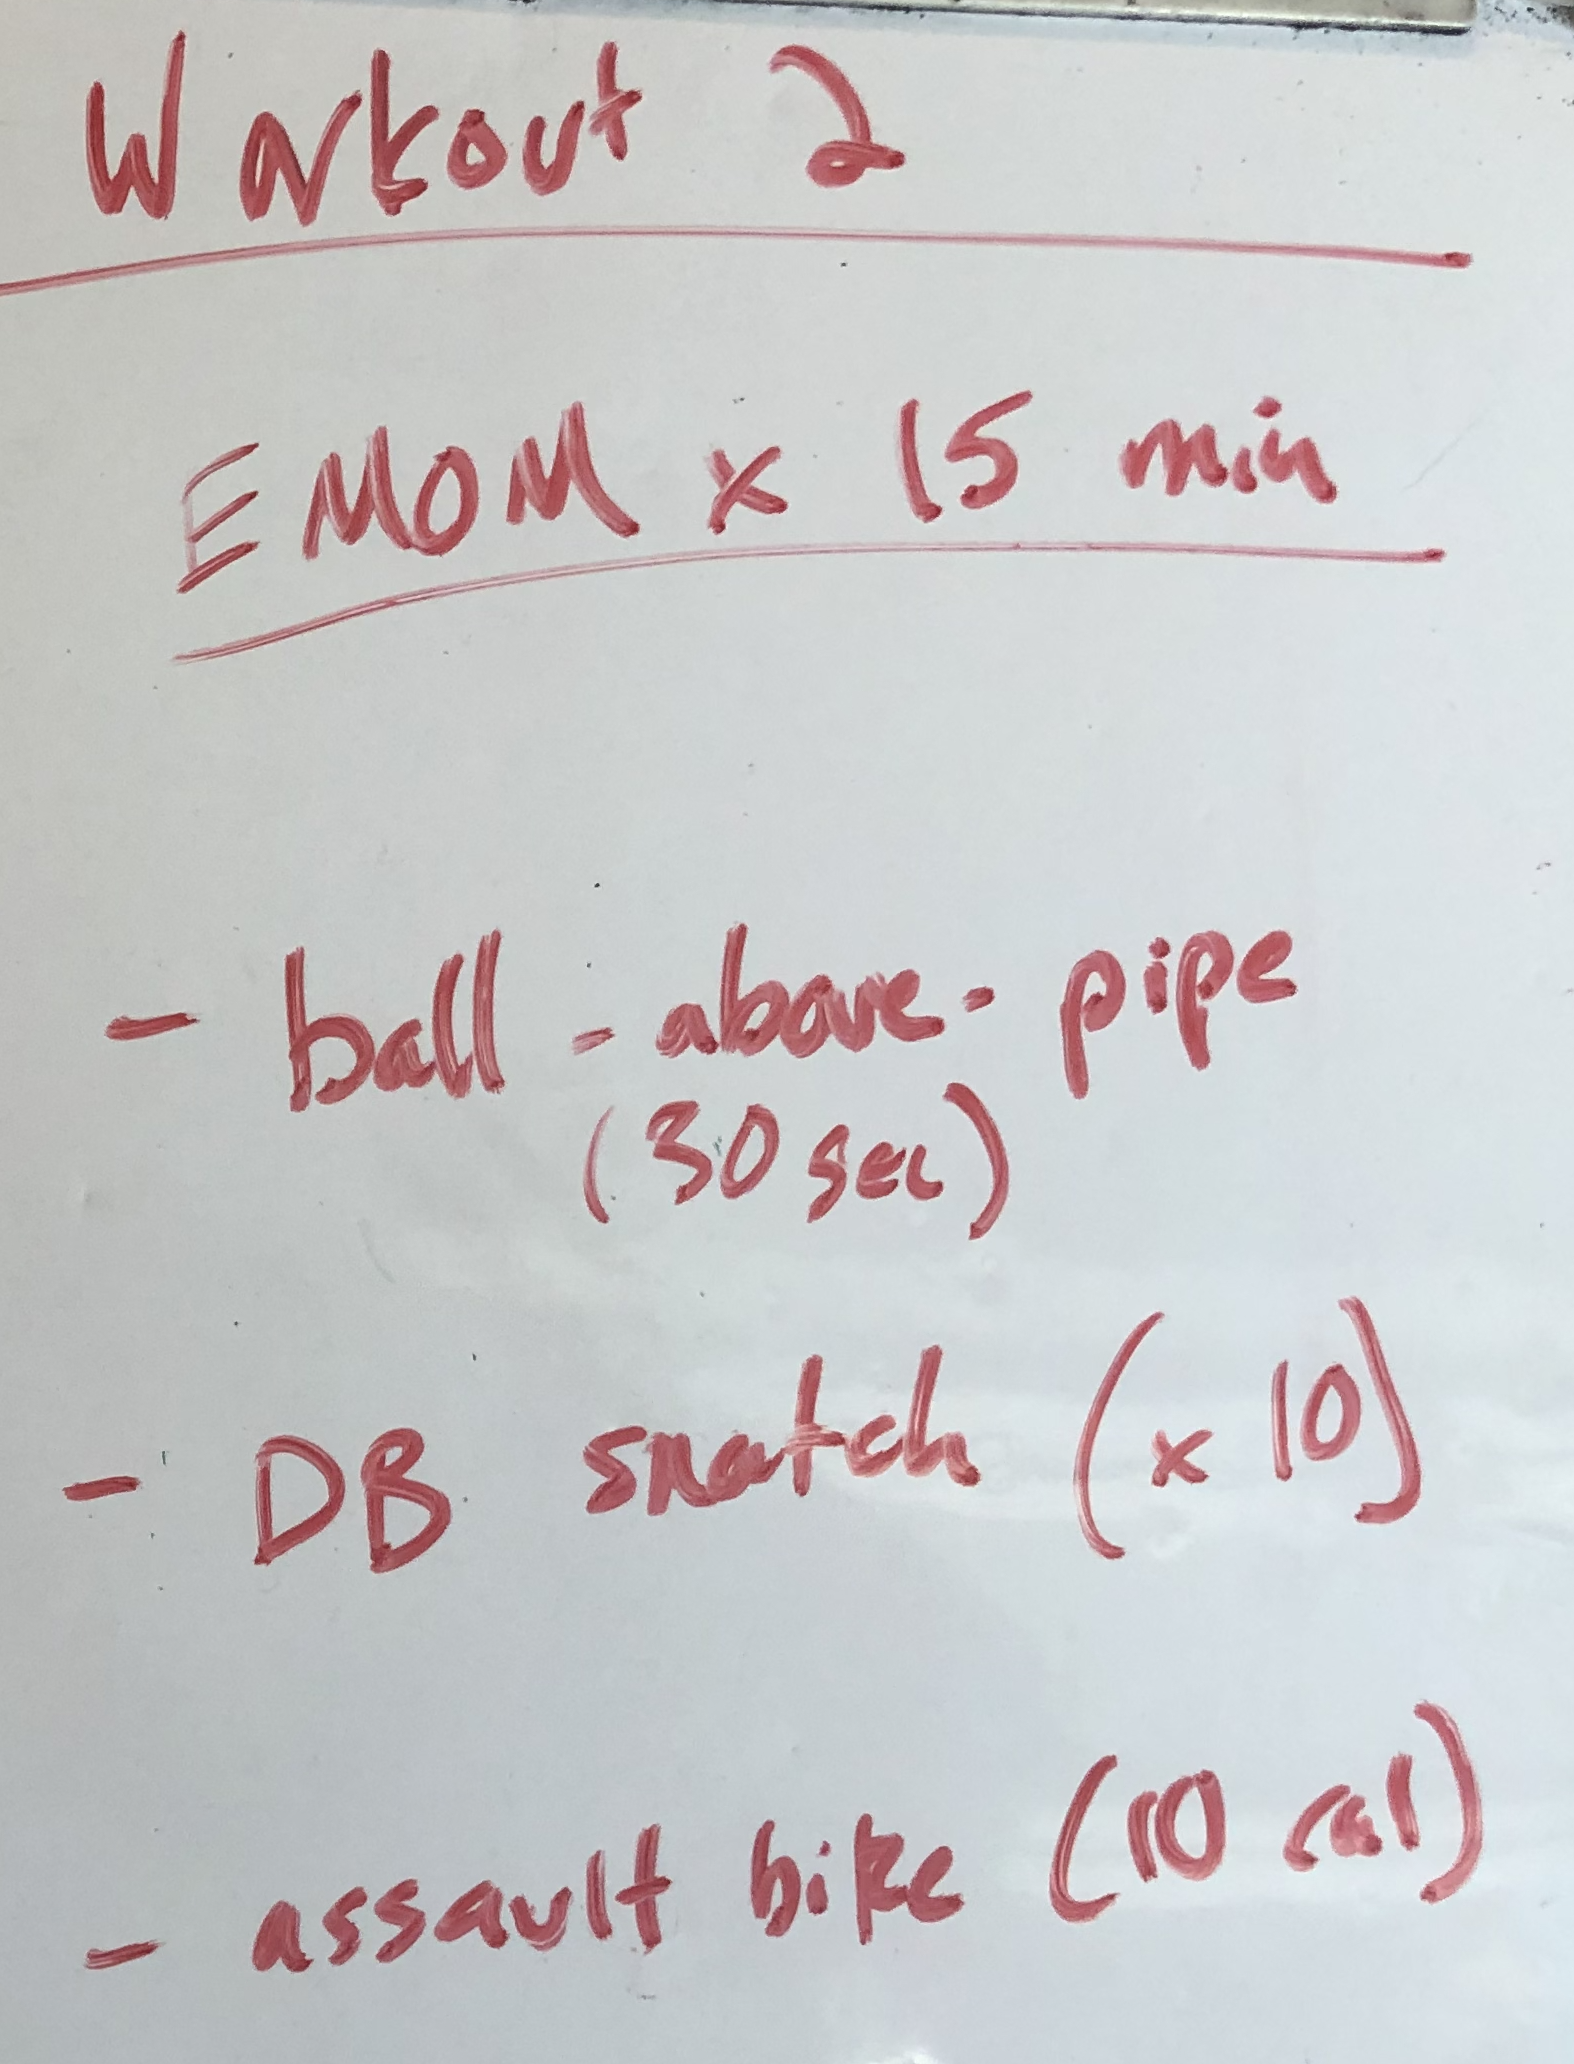 Workout 2
EMOM x 15 min
- ball-above-pipe
(30 sec)
- DB snatch (x 10)
- assault bike (10 cal)